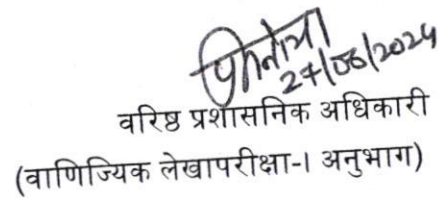 27/06/2024
वरिष्ठ प्रशासनिक अधिकारी
(वाणिज्यिक लेखापरीक्षा-I अनुभाग)